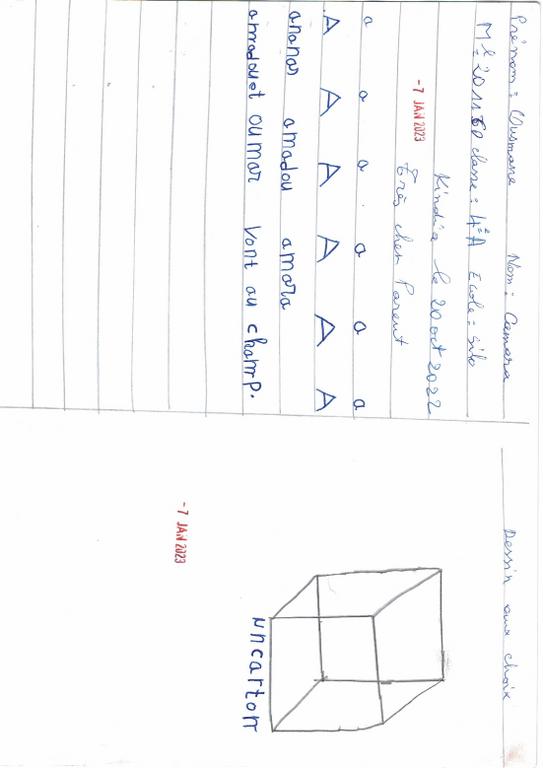 Prénom : Ousmane Nom : Camara
Mle : 201160 classe : 4èA Ecole : Silo
Kindia le 20 oct 2022
-7 JAN 2023
Très cher Parent
a a a a a a
A A A A A A
ananas amadou amara
amadouet oumar vont au champ.
Dessin aux choix
-7 JAN 2023
un carton